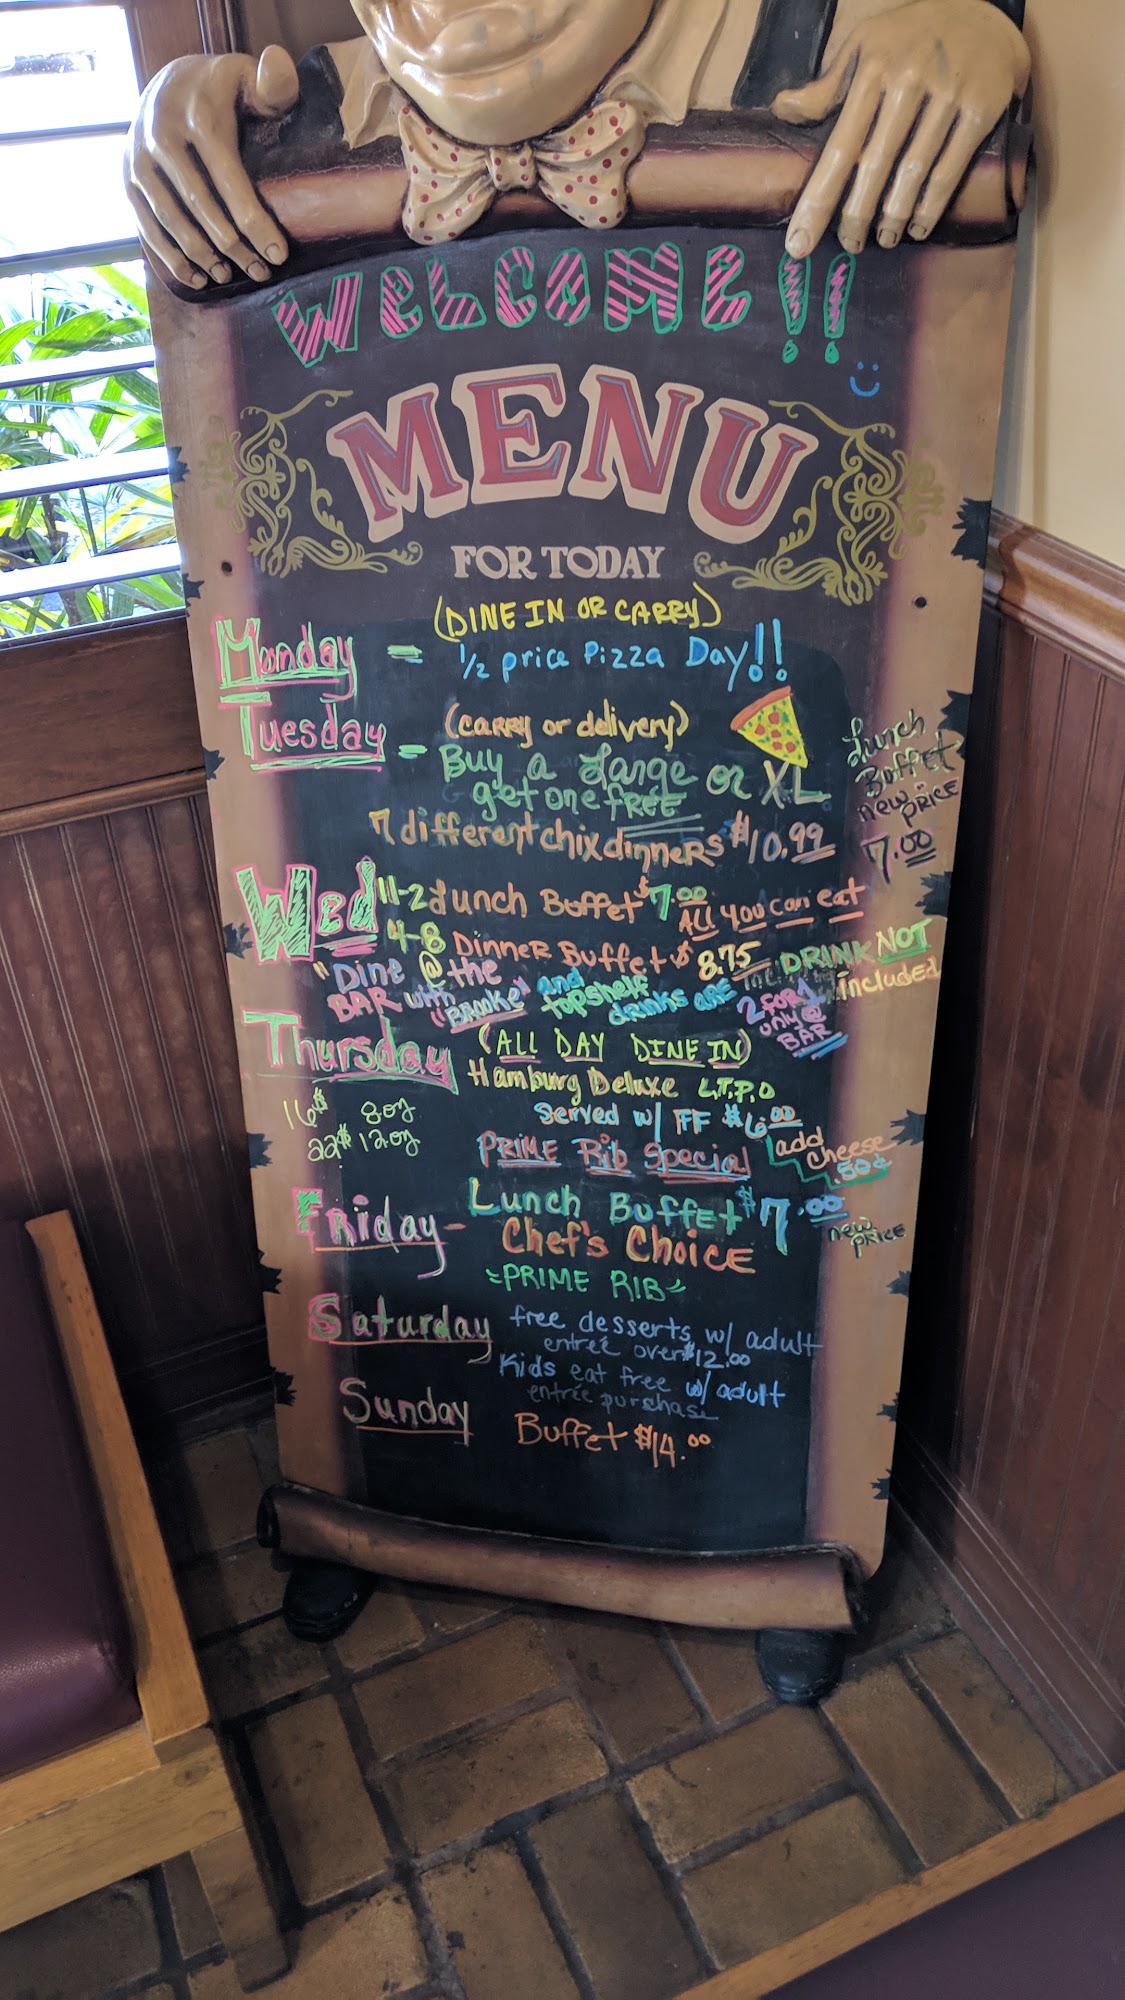 WELCOME!!
MENU
FOR TODAY
(DINE IN OR CARRY)
Monday = 1/2 price Pizza Day!!
Tuesday = (carry or delivery)
Buy a Large or XL
get one FREE
7 different chix dinners $10.99
Lunch
Buffet
new
price
7.00
Wed 11-2 Lunch Buffet $7.00 All you can eat
4-8 Dinner Buffet $8.75 DRINK NOT
included
"Dine @ the
BAR with "BROOKE" and
topshelf
drinks ARE 2 FOR 1
only @
BAR
Thursday (ALL DAY DINE IN)
Hamburg Deluxe L.T.P.O
Served w/ FF $6.00
add
cheese
.50¢
PRIME Rib Special
16$ 8oz
22$ 12.oz
Friday - Lunch Buffet $7.00
new
price
Chef's Choice
"PRIME RIB"
Saturday free desserts w/ adult
entrée over $12.00
Kids eat free w/ adult
entrée purchase
Sunday Buffet $14.00